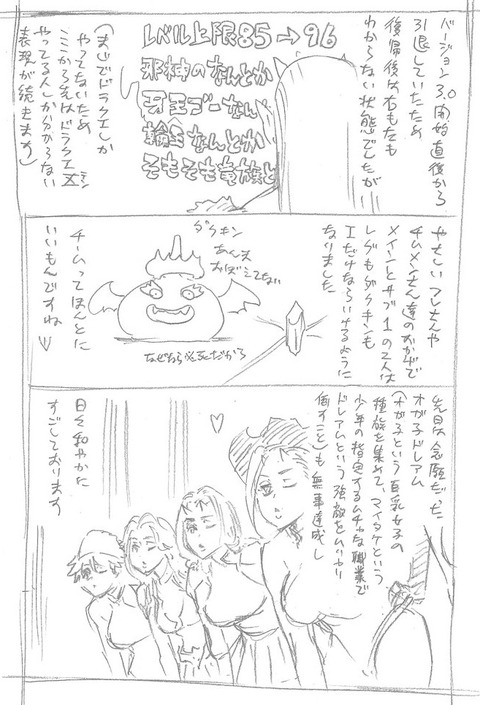 バージョン3.0開始直後から
引退していたため
復帰後は右もたも
わからない状態でしたが
レベル上限85→96
邪神のなんとか
牙王ゴーなん
輪王なんとか
そもそも竜族と
(まじでドラクエしか
やってないため
ここから先はドラクエⅩ
やってる人しか分からない
表現が続きます)
やさしいフレさんや
チムメンさん達のおかげで
メインとサブ1の2人は
レグもダクキンも
なりました
ダクキン
あんま
おぼえてない
なぜなら必死だから
チームってほんとに
いいもんですね
先日は念願だった
オガ子ドレアム
(オガ子という巨乳女子の
種族を集めて、マイタケという
少年の指定するムチャな職業で
ドレアムという強敵をムリヤリ
倒すこと)も無事達成し
日々和やかに
すごしております